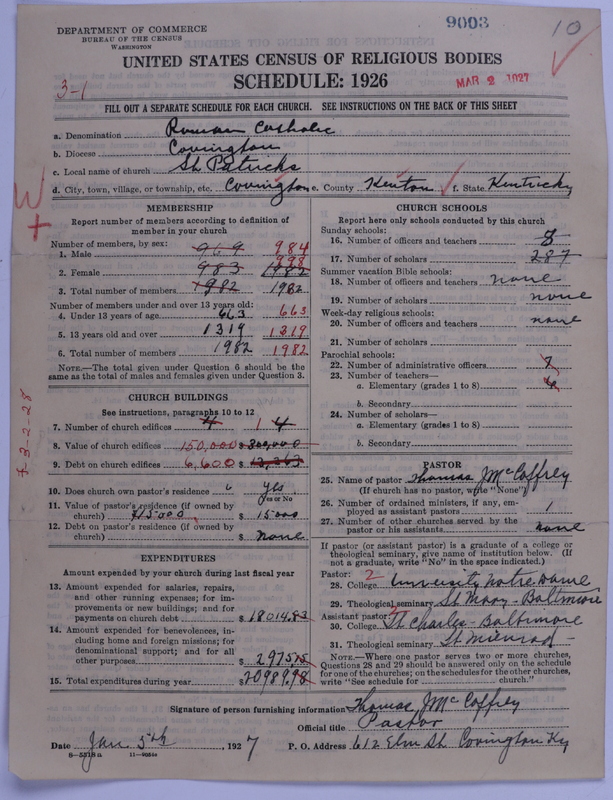 DEPARTMENT OF COMMERCE
BUREAU OF THE CENSUS
WASHINGTON
9003
10
UNITED STATES CENSUS OF RELIGIOUS BODIES
SCHEDULE: 1926
MAR 2 1927
3-1
FILL OUT A SEPARATE SCHEDULE FOR EACH CHURCH. SEE INSTRUCTIONS ON THE BACK OF THIS SHEET
a. Denomination Roman Catholic
b. Diocese Covington
c. Local name of church St Patricks
d. City, town, village, or township, etc. Covington e. County Kenton f. State Kentucky
MEMBERSHIP
Report number of members according to definition of
member in your church
Number of members, by sex:
1. Male 969 984
2. Female 983 998 1982
3. Total number of members 1982 1982
Number of members under and over 13 years old:
4. Under 13 years of age 663 663
5. 13 years old and over 1319 1319
6. Total number of members 1982 1982
NOTE.—The total given under Question 6 should be the
same as the total of males and females given under Question 3.
CHURCH BUILDINGS
See instructions, paragraphs 10 to 12
7. Number of church edifices 4 1 4
8. Value of church edifices 150,000 $ 300,000
9. Debt on church edifices 6,600 $ 13,263
10. Does church own pastor's residence? Yes
Yes or No
11. Value of pastor's residence (if owned by
church) $15000 $ 15000
12. Debt on pastor's residence (if owned by
church) $ none
EXPENDITURES
Amount expended by your church during last fiscal year
13. Amount expended for salaries, repairs,
and other running expenses; for im-
provements or new buildings; and for
payments on church debt $ 18014.83
14. Amount expended for benevolences, in-
cluding home and foreign missions; for
denominational support; and for all
other purposes $ 2975.15
15. Total expenditures during year $ 20989.98
CHURCH SCHOOLS
Report here only schools conducted by this church
Sunday schools:
16. Number of officers and teachers 8
17. Number of scholars 287
Summer vacation Bible schools:
18. Number of officers and teachers none
19. Number of scholars none
Week-day religious schools:
20. Number of officers and teachers none
21. Number of scholars
Parochial schools:
22. Number of administrative officers
23. Number of teachers—
a. Elementary (grades 1 to 8)
b. Secondary
24. Number of scholars—
a. Elementary (grades 1 to 8)
b. Secondary
PASTOR
25. Name of pastor Thomas J McCaffrey
(If church has no pastor, write "None")
26. Number of ordained ministers, if any, em-
ployed as assistant pastors 1
27. Number of other churches served by the
pastor or his assistants none
If pastor (or assistant pastor) is a graduate of a college or
theological seminary, give name of institution below. (If
not a graduate, write "No" in the space indicated.)
Pastor: 2
28. College University Notre Dame
29. Theological seminary St Mary - Baltimore
Assistant pastor:
30. College St Charles - Baltimore
31. Theological seminary St Meinrad -
NOTE.—Where one pastor serves two or more churches,
Questions 28 and 29 should be answered only on the schedule
for one of the churches; on the schedules for the other churches,
write "See schedule for church."
Signature of person furnishing information Thomas J McCaffrey
Official title Pastor
Date Jan 5th, 1927 P. O. Address 612 Elm St Covington Ky